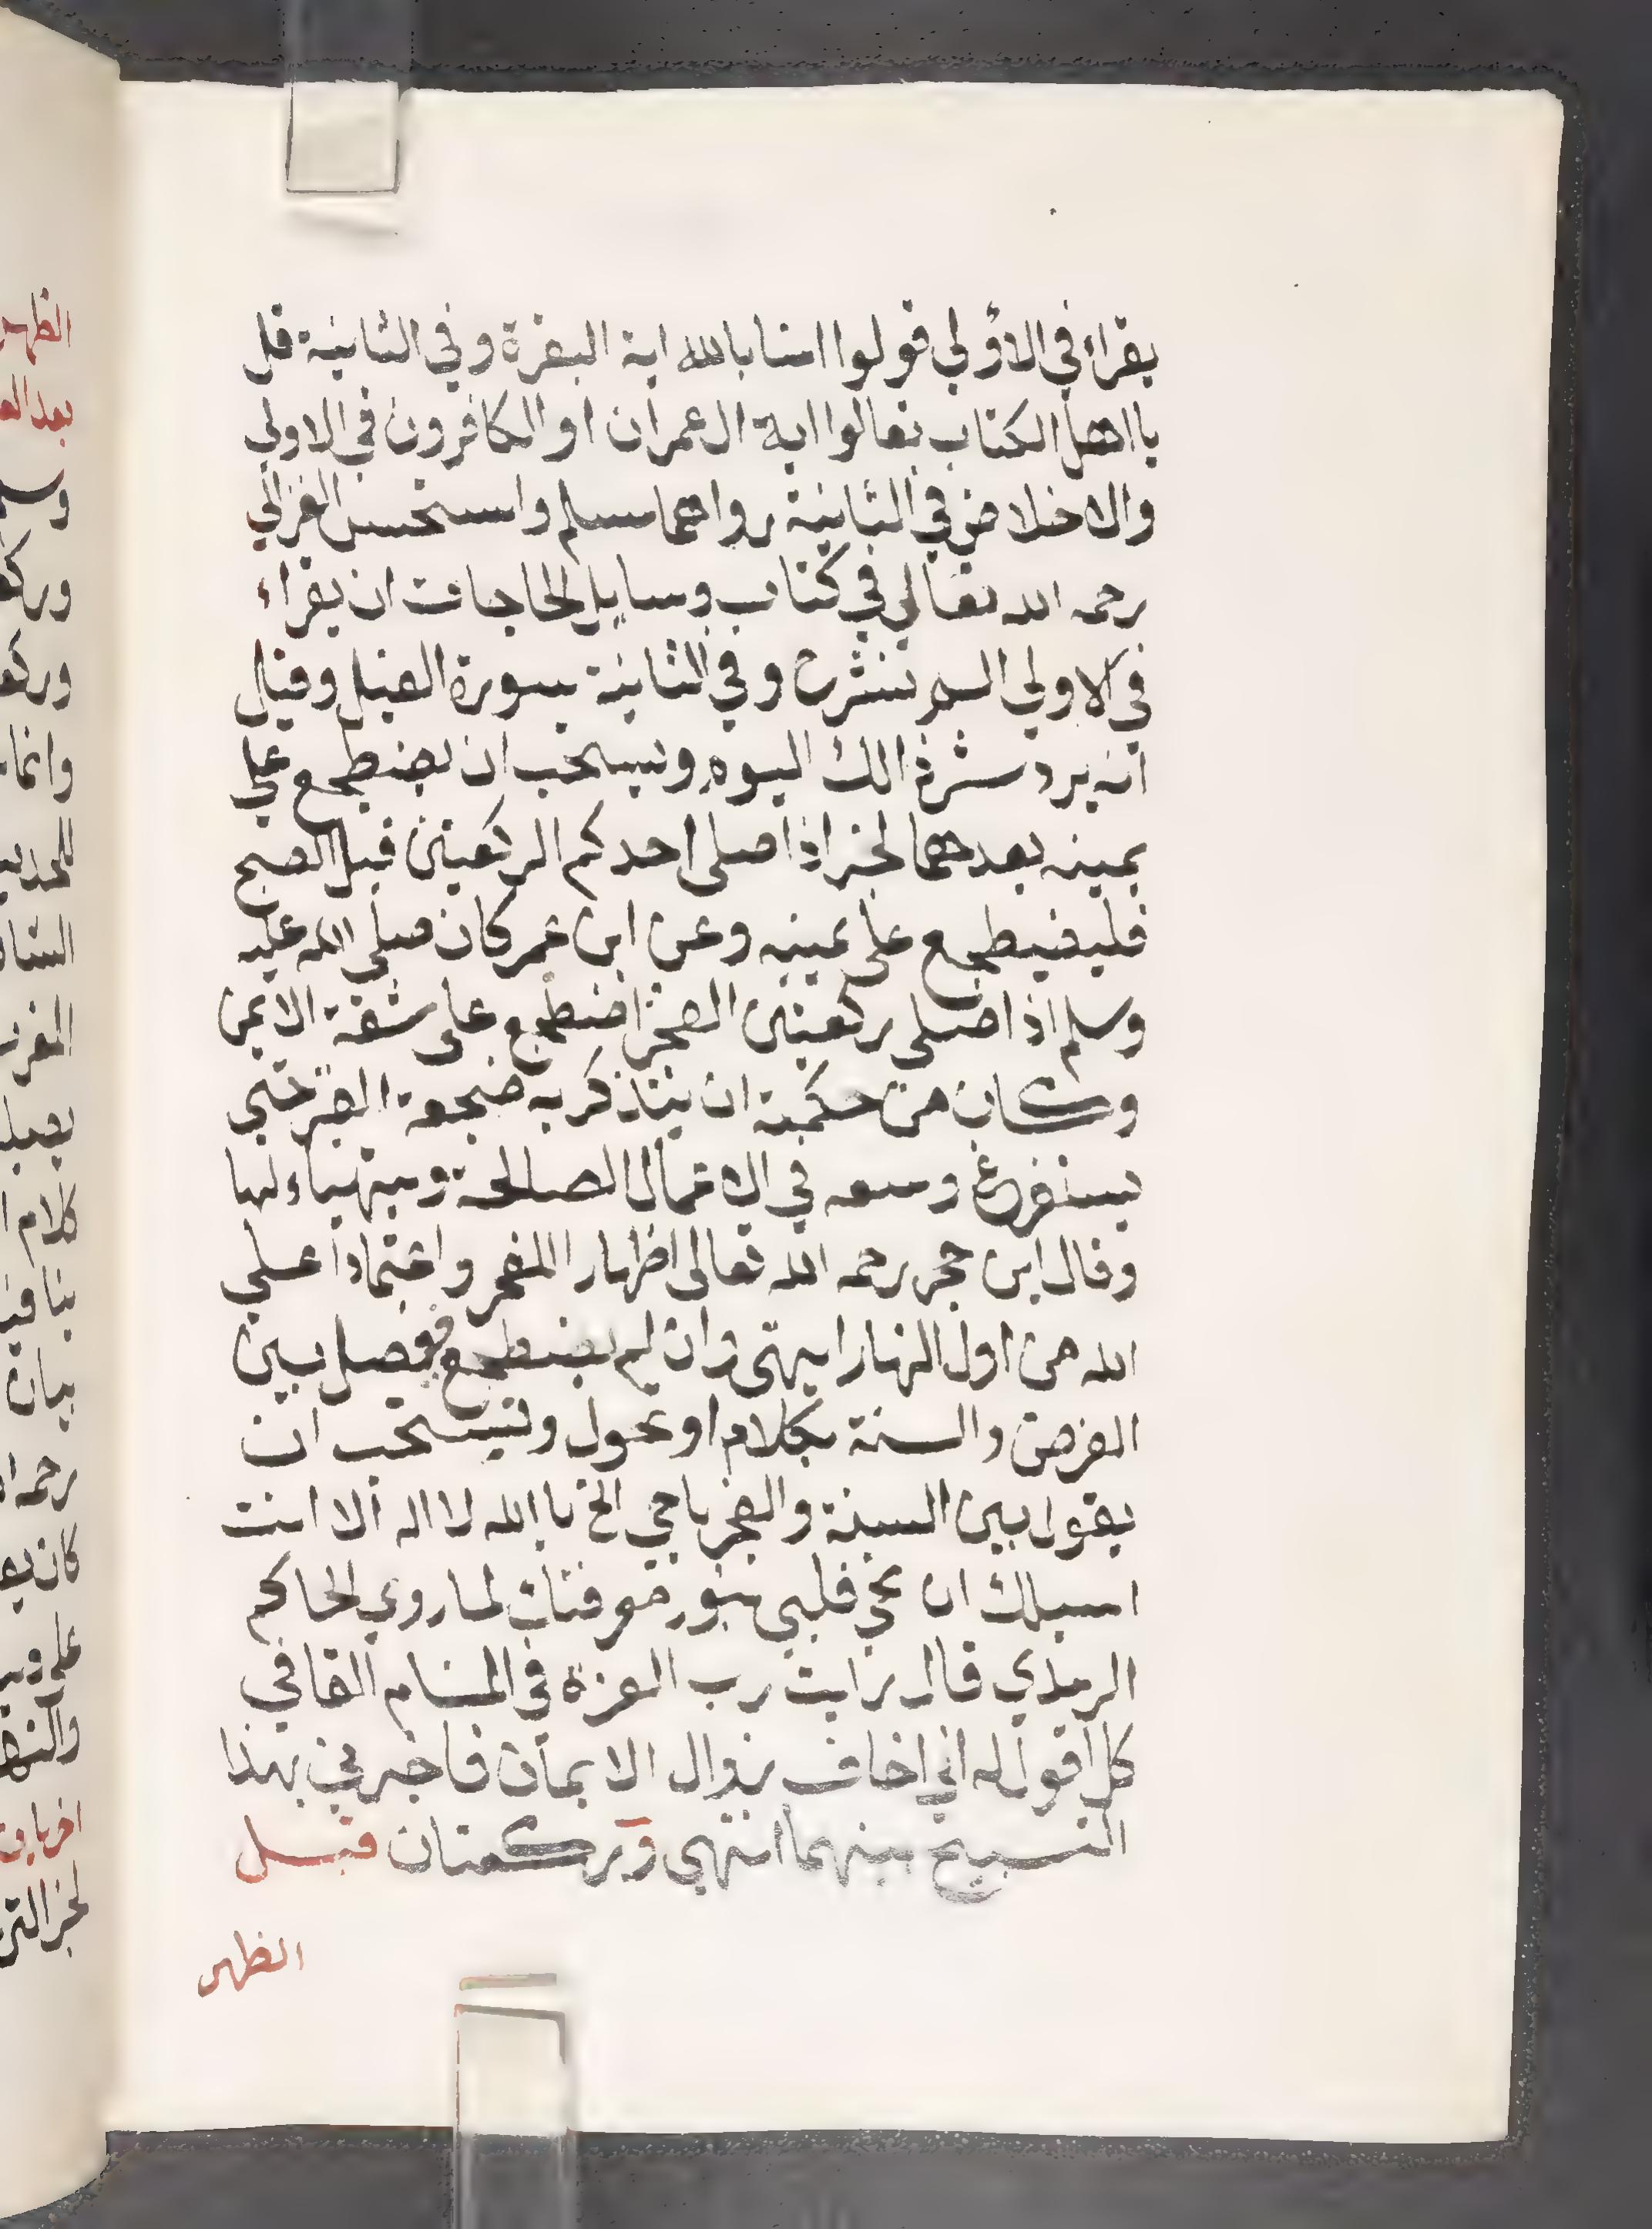 يقراء في الأولي قولوا امنا بالله اية البقرة وفي الثانية قل
يا اهل الكتاب تعالوا اية ال عمران او الكافرون في الاولي
والاخلاص في الثانية رواهما مسلم واستحسن الغزالي
رحمه الله تعالي في كتاب وسايل الحاجات ان يقراء
في الاولي الم نشرح وفي الثانية سورة الفيل وقيل
انه يرد شر ذالك اليوم ويستحب ان يضطجع علي
يمينه بعدهما لخبر اذا صلي احدكم الركعتين قبل الصبح
فليضطجع على يمينه وعن ابن عمر كان صلي الله عليه
وسلم اذا صلى ركعتين الفجر اضطجع على شقة الايمن
وكان من حكمة ان يتذكر به ضجعة القبر حتي
يستفرغ وسعه في الاعمال الصالحة ويتهياء لها
وقال ابن حجر رحمه الله تعالى اظهار الفجر واعتمادا علي
الله من اول النهار انتهى وان لم يضطجع فيفصل بين
الفرض والسنة بكلام او تحول ويستحب ان
يقول بين السنة والفجر يا حي الخ يا الله لا اله الا انت
اسيلك ان تحي قلبي بنور معرفتك لما روي الحاكم
الرمذي قال رايت رب العزة في المنام القا في
كل اقول له اني اخاف زوال الايمان فاخبرني بهذا
التسبيح بينهما انتهي وركعتان قبل
الظهر